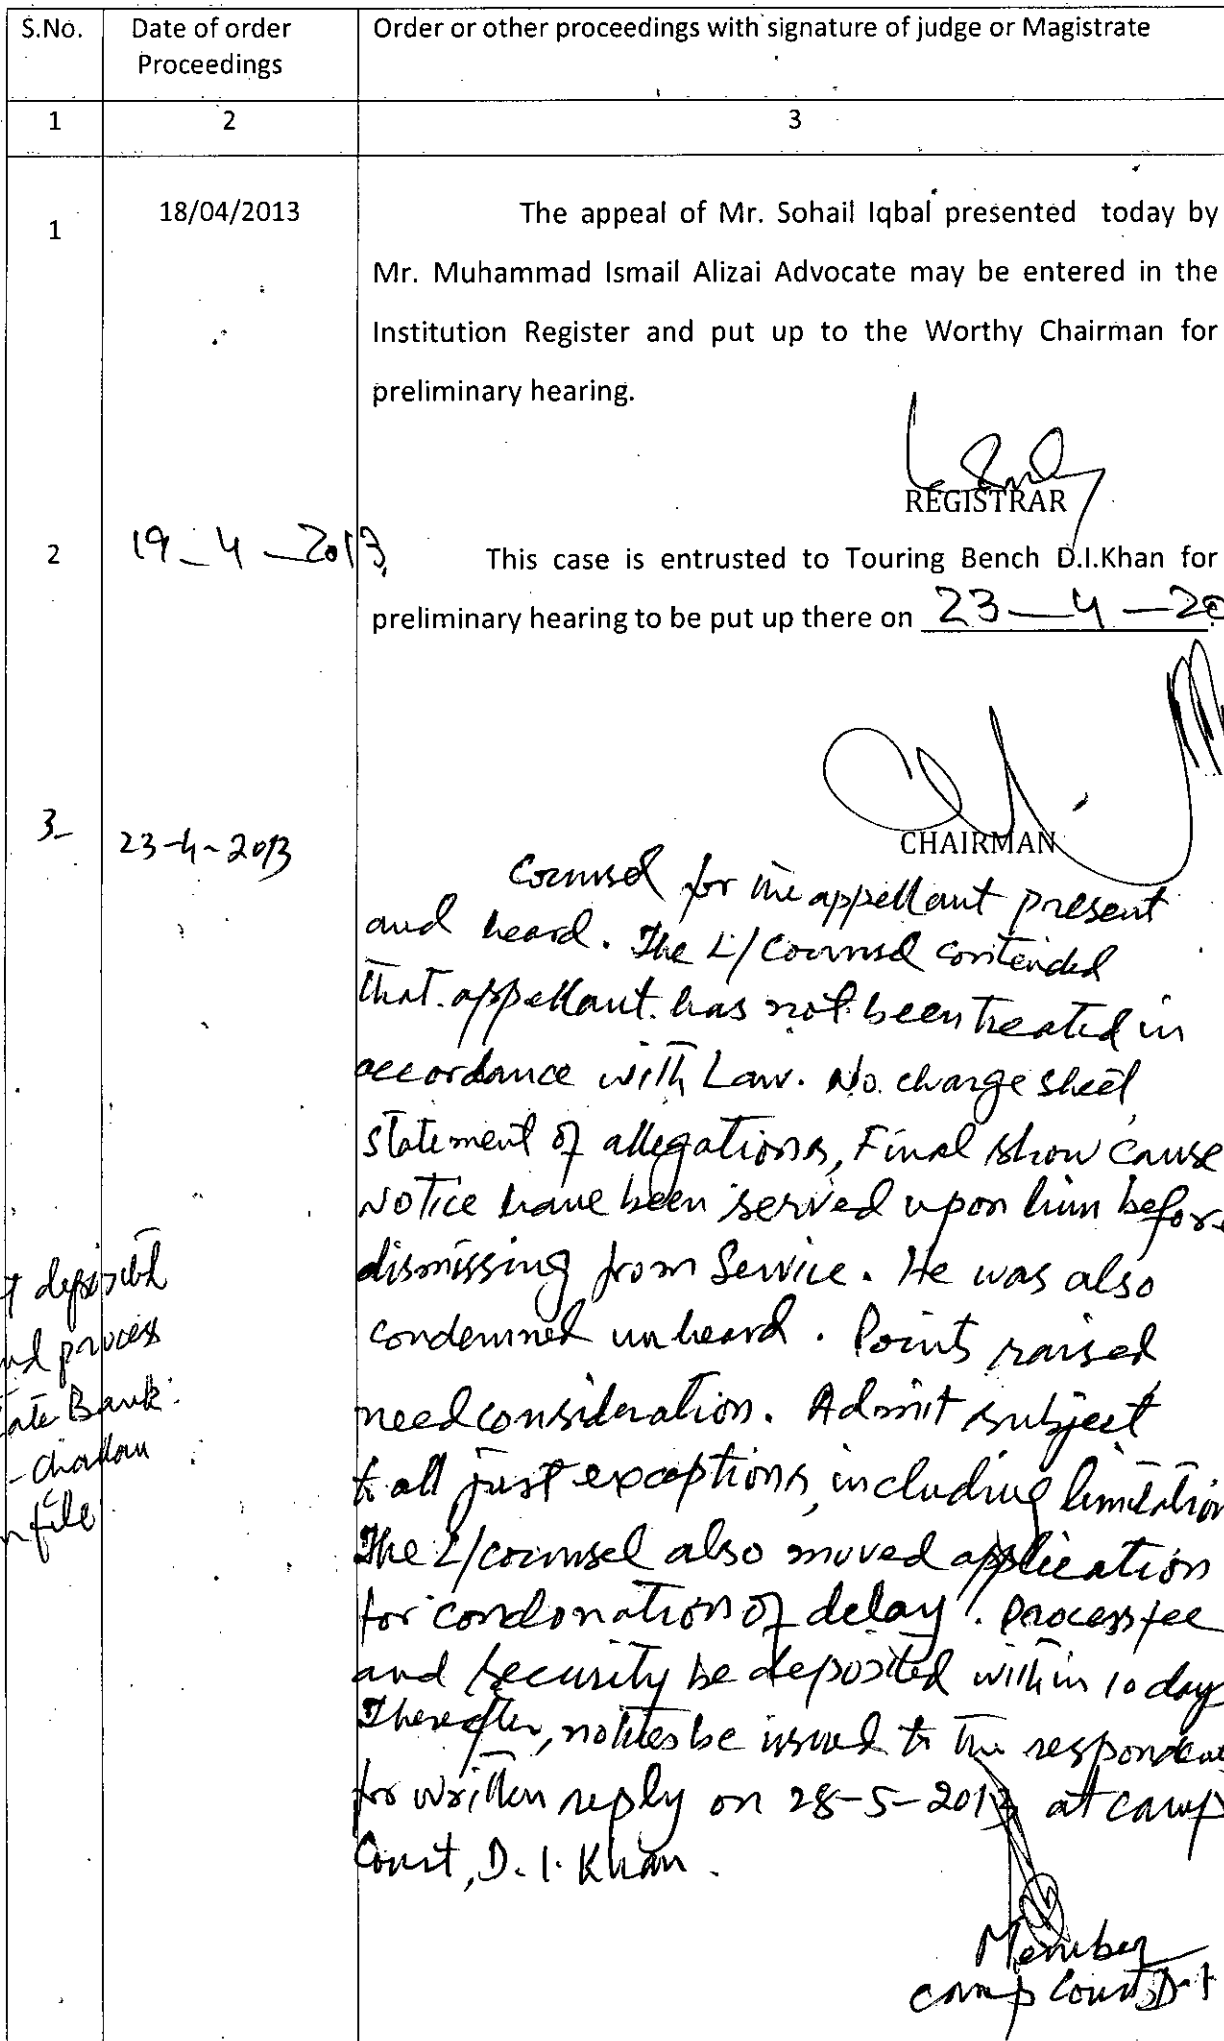 S.No. Date of order Order or other proceedings with signature of judge or Magistrate
Proceedings
1 2 3
1 18/04/2013 The appeal of Mr. Sohail Iqbal presented today by
Mr. Muhammad Ismail Alizai Advocate may be entered in the
Institution Register and put up to the Worthy Chairman for
preliminary hearing.
REGISTRAR
2 19-4-2013 This case is entrusted to Touring Bench D.I.Khan for
preliminary hearing to be put up there on 23-4-20
CHAIRMAN
3- 23-4-2013
Counsel for the appellant present
and heard. The L/Counsel contended
that appellant has not been treated in
accordance with Law. No charge sheet
statement of allegations, Final show cause
Notice have been served upon him before
dismissing from Service. He was also
condemned unheard. Points raised
need consideration. Admit subject
to all just exceptions, including limitation
The L/counsel also moved application
for condonation of delay. Process fee
and security be deposited within 10 day
Thereafter, notices be issued to the respondent
for written reply on 28-5-2013 at camp
Court, D.I. Khan.
Member
camp Court D.I
deposited
process
ate Bank
file